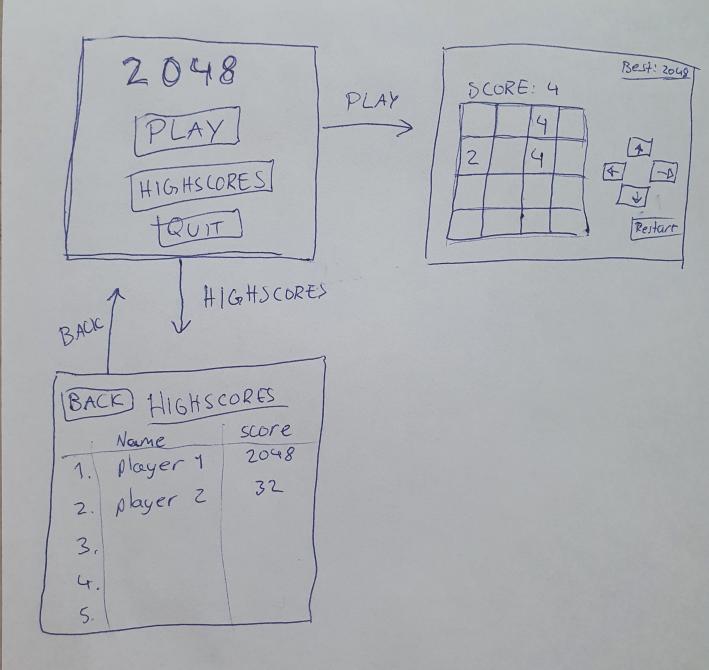 2048
PLAY
HIGHSCORES
QUIT
PLAY
Best: 2048
SCORE: 4
4
2 4
↑
← →
↓
Restart
HIGHSCORES
BACK
BACK HIGHSCORES
Name score
1. player 1 2048
2. player 2 32
3.
4.
5.